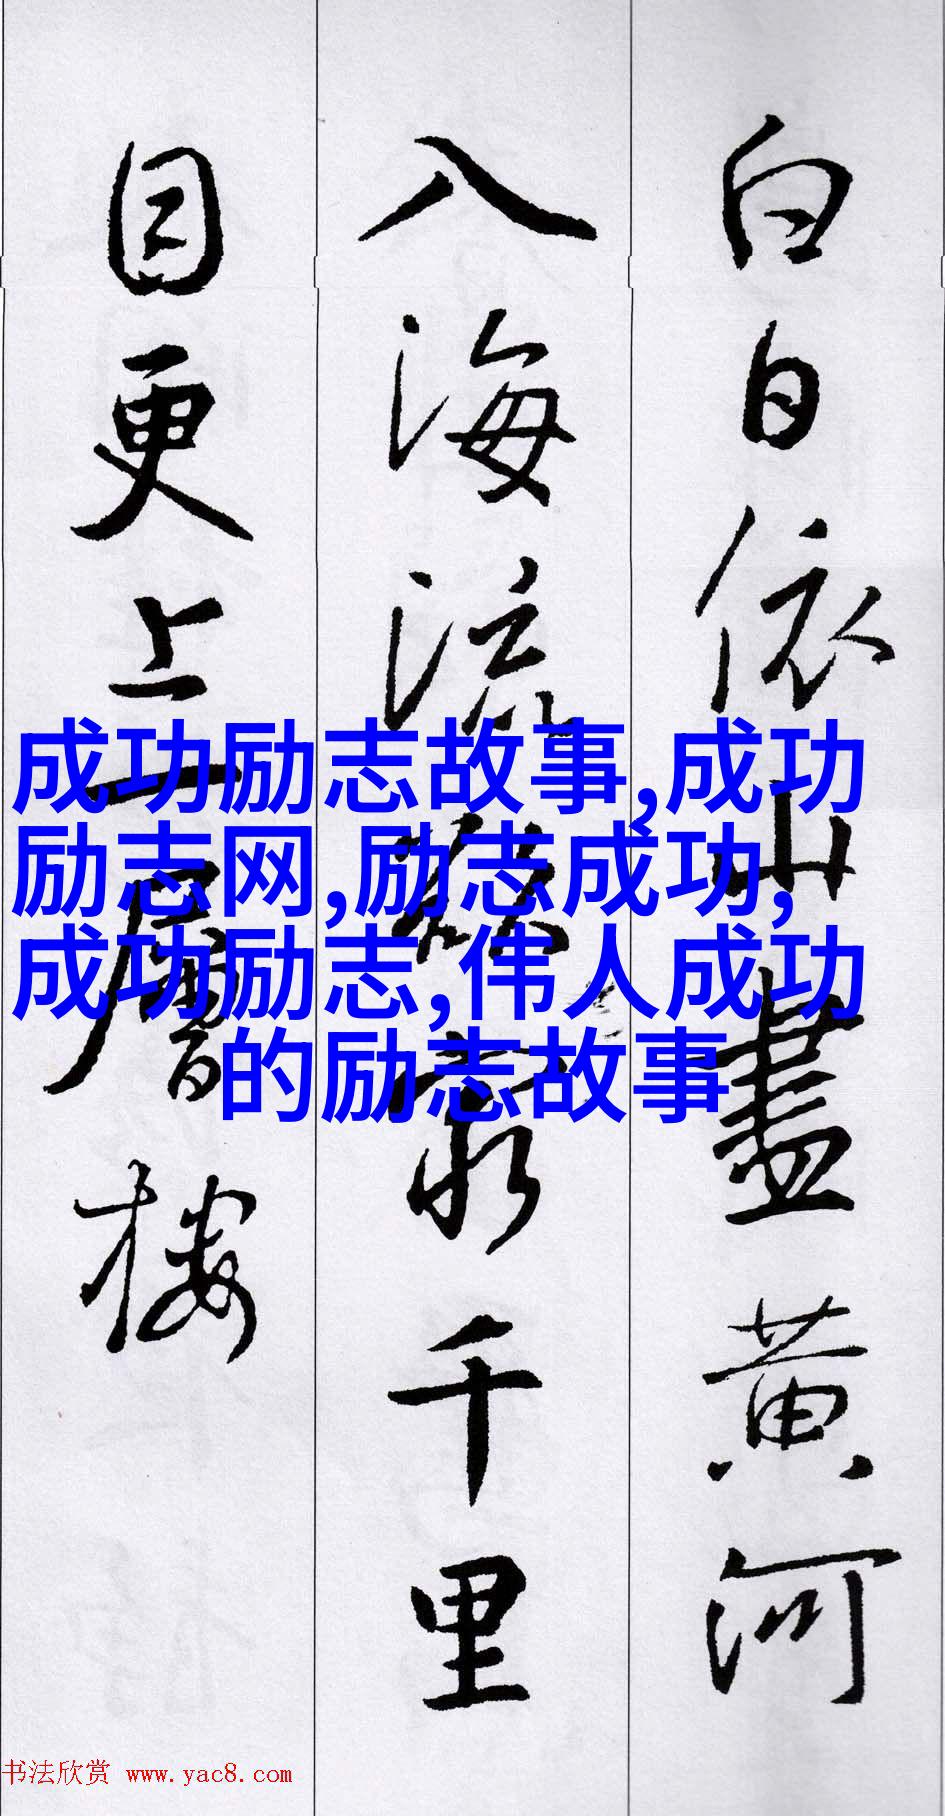 白日依山盡黄河
入海流千里
目更上一層樓
成功励志故事,成功
励志网,励志成功,
成功励志,伟人成功
的励志故事
书法欣赏 www.yac8.com